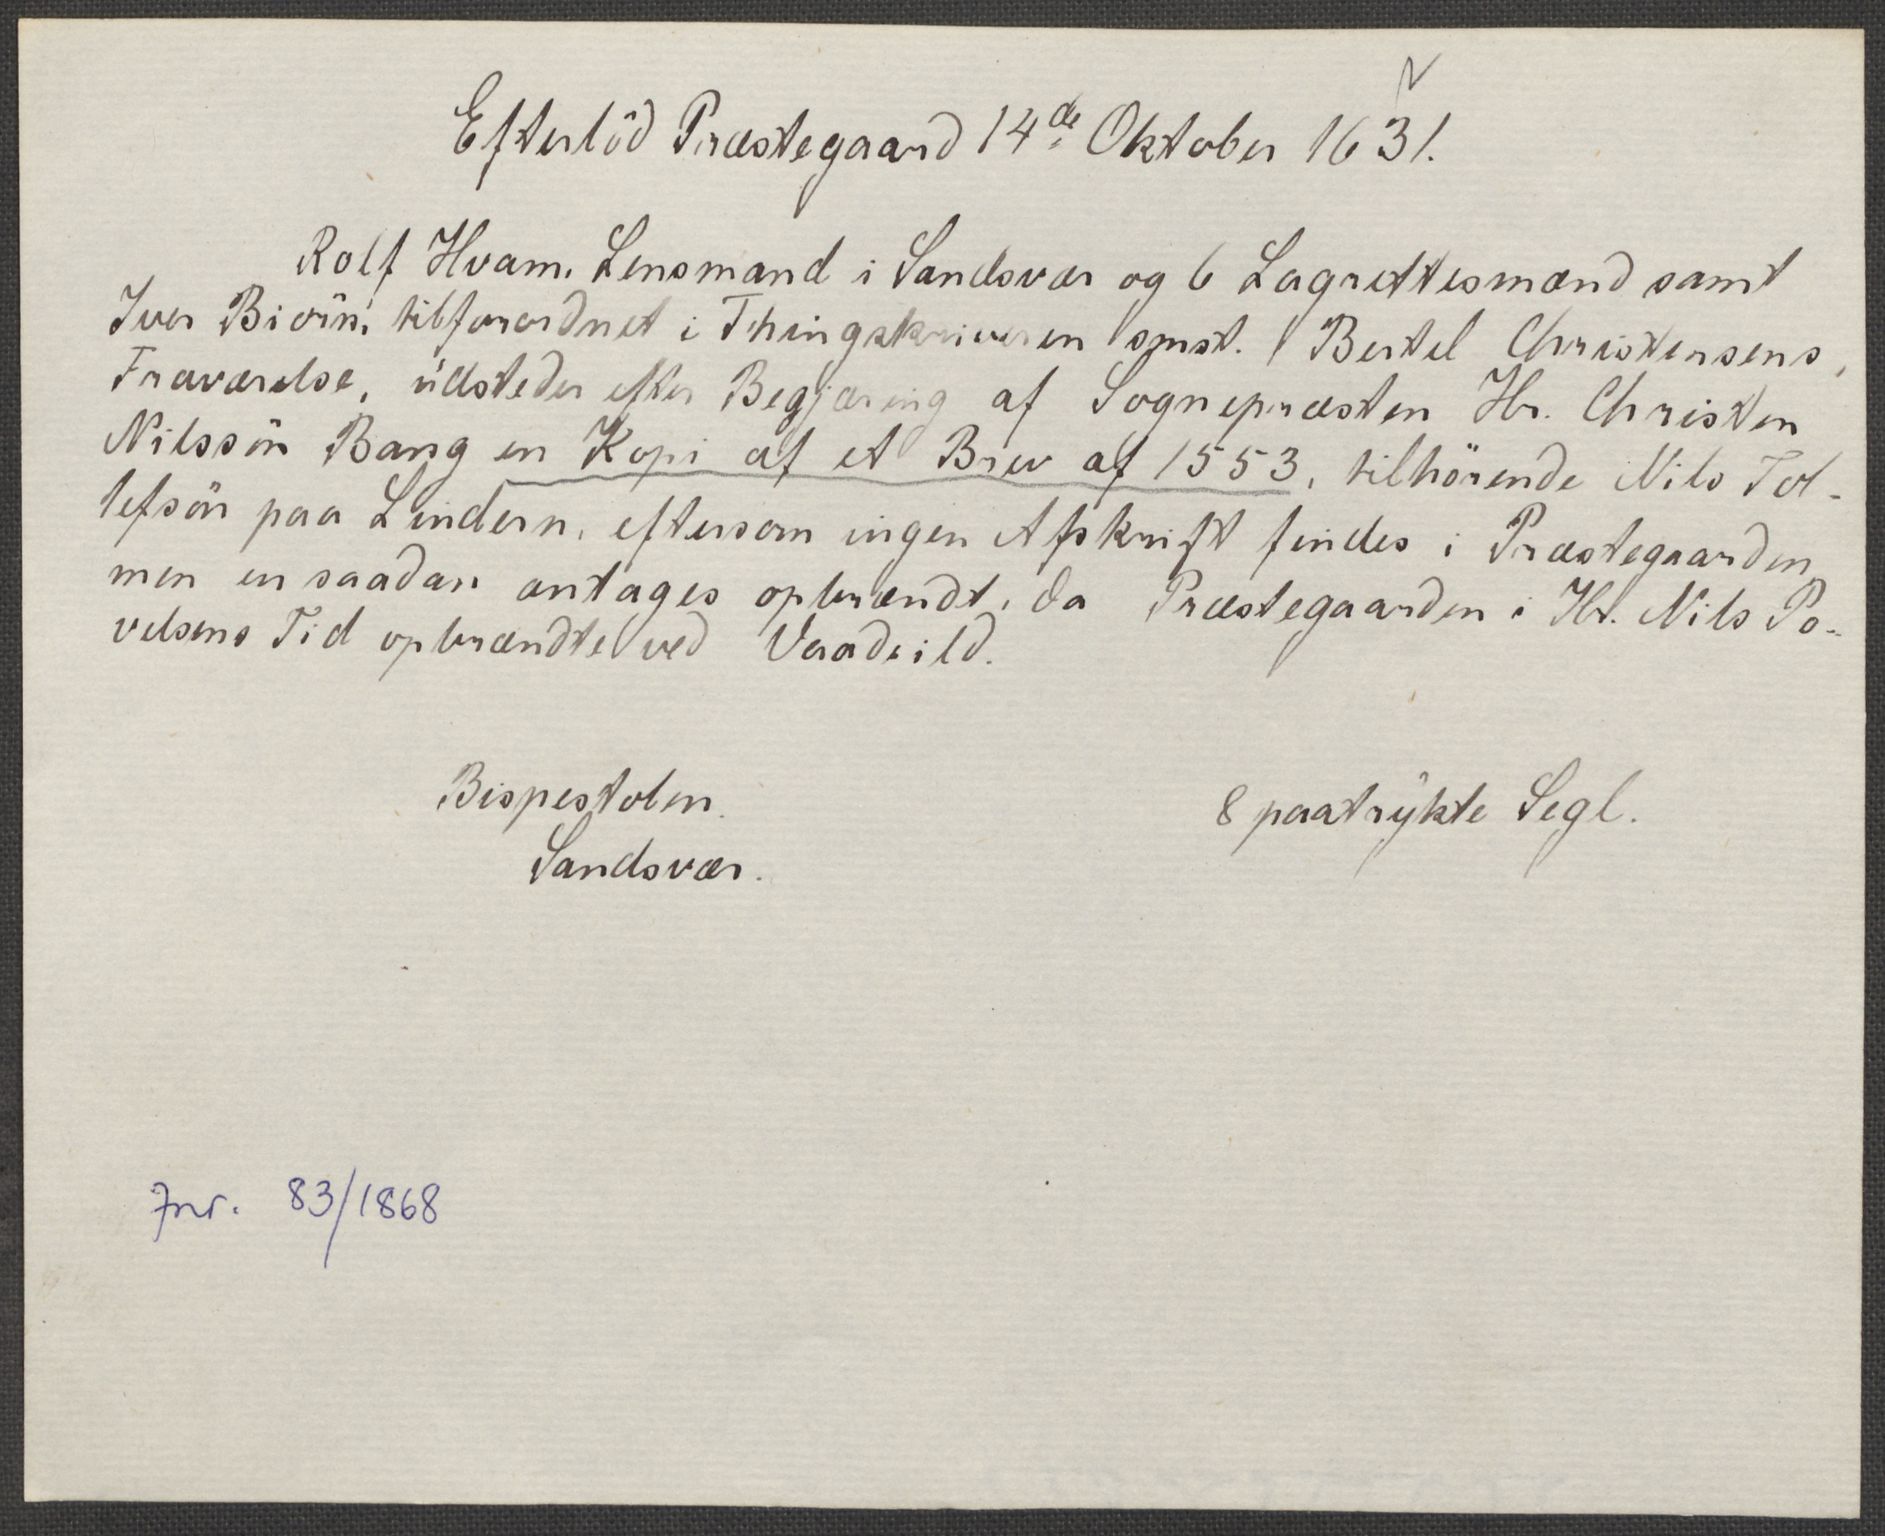 Efterlöd Præstegaard 14de Oktober 1631.
Rolf Hvam, Lensmand i Sandsvær og 6 Lagrettesmænd samt
Iver Biörn, tilforordnet i Thingskriveren smst. Bertel Christensens,
Fraværelse, üdsteder efter Begjæring af Sognepræsten Hr. Christen
Nilssön Bang en Kopi af et Brev af 1553, tilhörende Nils Tol-
lefsön paa Lindern, eftersom ingen Afskrift findes i Præstegaarden
men en saadan antages opbrændt, da Præstegaarden i Hr. Nils Po-
velsens Tid opbrændte ved Vaadeild.
Bispestolen.
Sandsvær.
8 paatrÿkte Segl.
Jnr. 83/1868